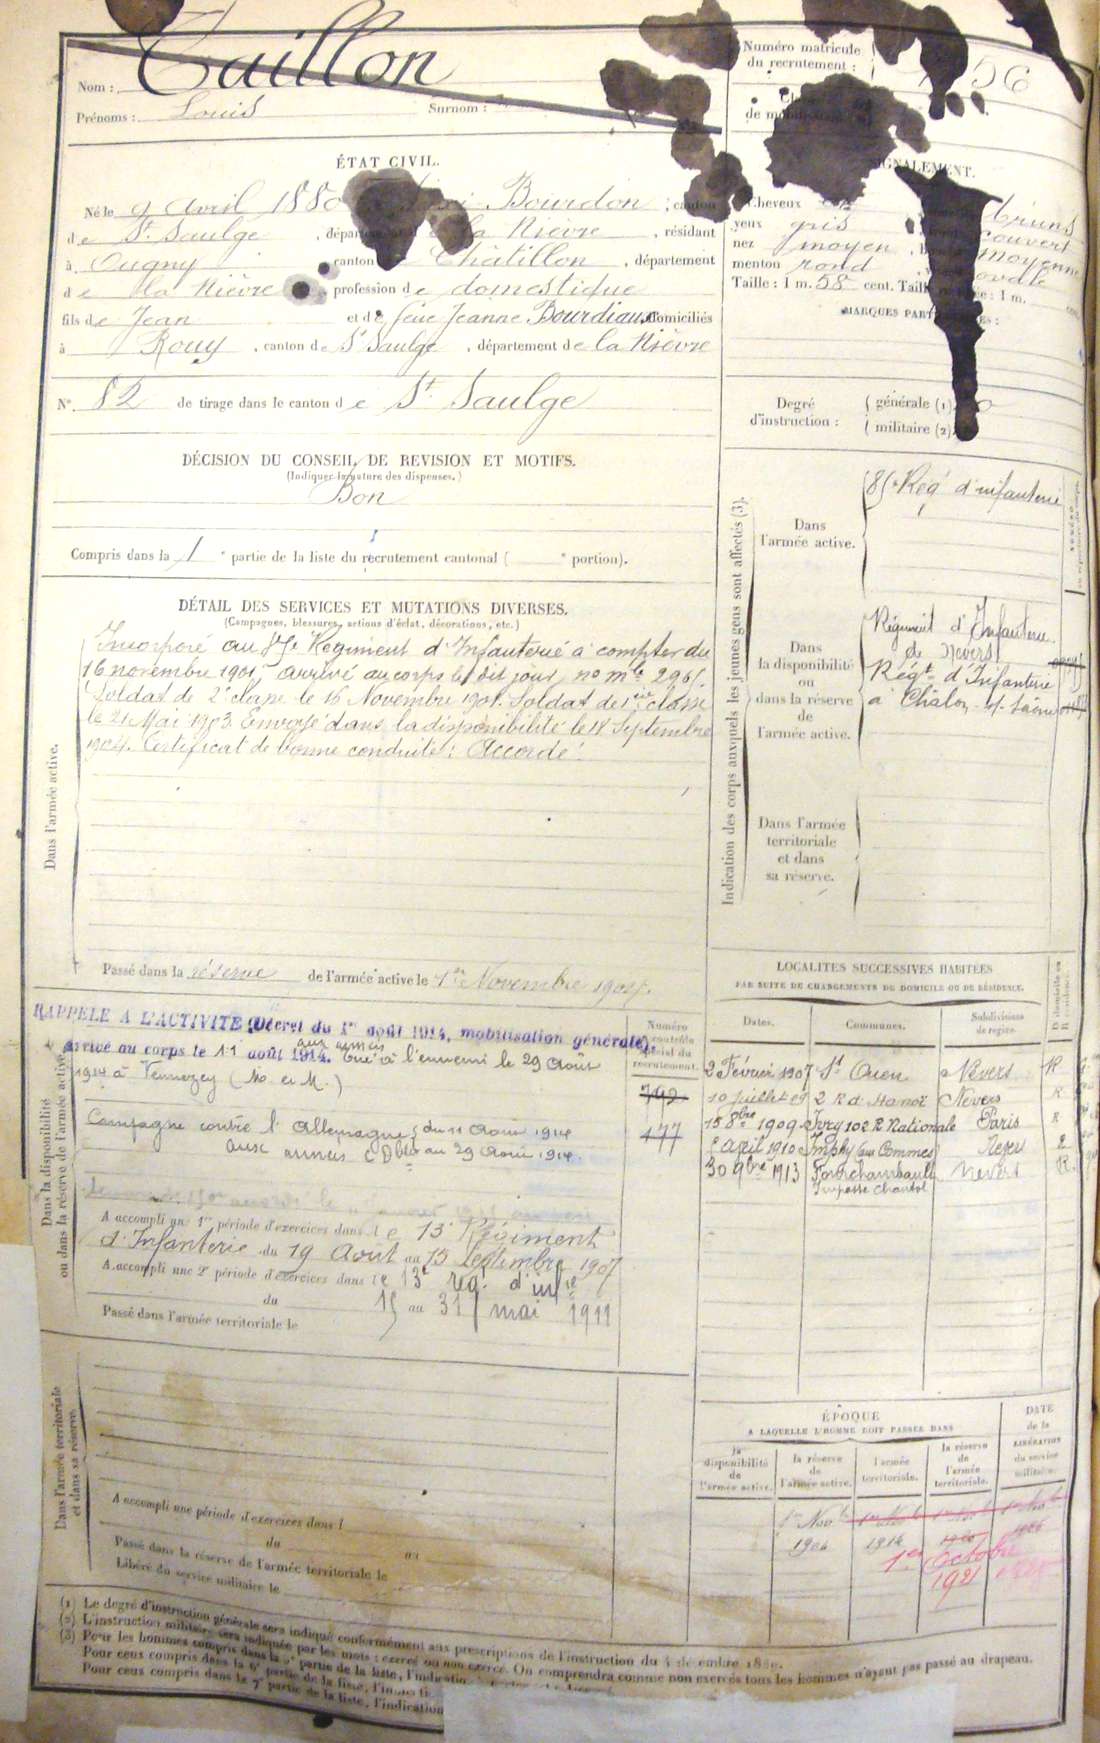 Nom : Taillon
Prénoms : Louis Surnom :
Numéro matricule
du recrutement : 56
de
ÉTAT CIVIL.
Né le 9 Avril 1880 Bourdon , canton
de St Saulge , département la Nièvre , résidant
à Ougny , canton Châtillon , département
de la Nièvre , profession de domestique
fils de Jean et de feue Jeanne domiciliés
à Rouy , canton de St Saulge , département de la Nièvre
N° 82 de tirage dans le canton de St Saulge
SIGNALEMENT.
Cheveux bruns
yeux gris couvert
nez moyen moyenne
menton rond ovale
Taille : 1 m. 58 cent. Taille : 1 m.
MARQUES
Degré
d'instruction :
générale (1)
militaire (2)
DÉCISION DU CONSEIL DE REVISION ET MOTIFS.
(Indiquer la nature des dispenses.)
Bon
Compris dans la 1 e partie de la liste du recrutement cantonal ( e portion).
DÉTAIL DES SERVICES ET MUTATIONS DIVERSES.
(Campagnes, blessures, actions d'éclat, décorations, etc.)
Dans l'armée active.
Incorporé au Régiment d'Infanterie à compter du
16 novembre 1901 arrivé au corps le dit jour, no mle
Soldat de 2e classe le 16 Novembre 1901. Soldat de 1ère classe
le 21 Mai 1903 Envoyé dans la disponibilité le 18 Septembre
1904. Certificat de bonne conduite : Accordé.
Passé dans la réserve de l'armée active le 1er Novembre 1904.
Indication des corps auxquels les jeunes gens sont affectés (3).
Dans
l'armée active.
Reg d'infanterie
Dans
la disponibilité
ou
dans la réserve
de
l'armée active.
Régiment d'Infanterie
de Nevers
Régt d'Infanterie
à Châlon s/ Saône
Dans l'armée
territoriale
et dans
sa réserve.
Dans la disponibilité
ou dans la réserve de l'armée active.
RAPPELÉ A L'ACTIVITÉ (Décret du 1er août 1914, mobilisation générale).
aux armées
arrivé au corps le 11 août 1914. Tué à l'ennemi le 29 Août
1914 à Vennezey (M. et M.)
Campagne contre l'Allemagne du 11 Aout 1914
aux armées au 29 Aout 1914.
A accompli une 1re période d'exercices dans le 13e Régiment
d'Infanterie du 19 Août au 15 Septembre 1907
A accompli une 2e période d'exercices dans le 13e rég. d'infie
du 15 au 31 mai 1911
Passé dans l'armée territoriale le
Numéro
contrôle
spécial du
recrutement.
177
LOCALITÉS SUCCESSIVES HABITÉES
PAR SUITE DE CHANGEMENTS DE DOMICILE OU DE RÉSIDENCE.
Dates. Communes. Subdivisions
de région. D domicile ou
R résidence.
2 Février 1907 St Ouen Nevers R
10 juillet 09 2 R d Hanoï Nevers R
15 8bre 1909 Ivry 102 R Nationale Paris R
Avril 1910 Imphy (aux Commes) Nevers R
30 9bre 1913 Fourchambault Nevers R
Impasse Chantol
Dans l'armée territoriale
et dans sa réserve.
A accompli une période d'exercices dans l
du au
Passé dans la réserve de l'armée territoriale le
Libéré du service militaire le
ÉPOQUE
A LAQUELLE L'HOMME DOIT PASSER DANS
la
disponibilité
de
l'armée active.
la réserve
de
l'armée active.
l'armée
territoriale.
la réserve
de
l'armée
territoriale.
DATE
de la
LIBÉRATION
du service
militaire.
1er Nov
1904 1914
1er Octobre
1921
(1) Le degré d'instruction générale sera indiqué conformément aux prescriptions de l'instruction du
(2) L'instruction militaire sera indiquée par les mots : exercé ou non exercé. On comprendra comme non exercés tous les hommes n'ayant pas passé au drapeau.
(3) Pour les hommes compris dans la partie de la liste, l'indication
Pour ceux compris dans la 6e partie de la liste,
Pour ceux compris dans la 7e partie de la liste, l'indication